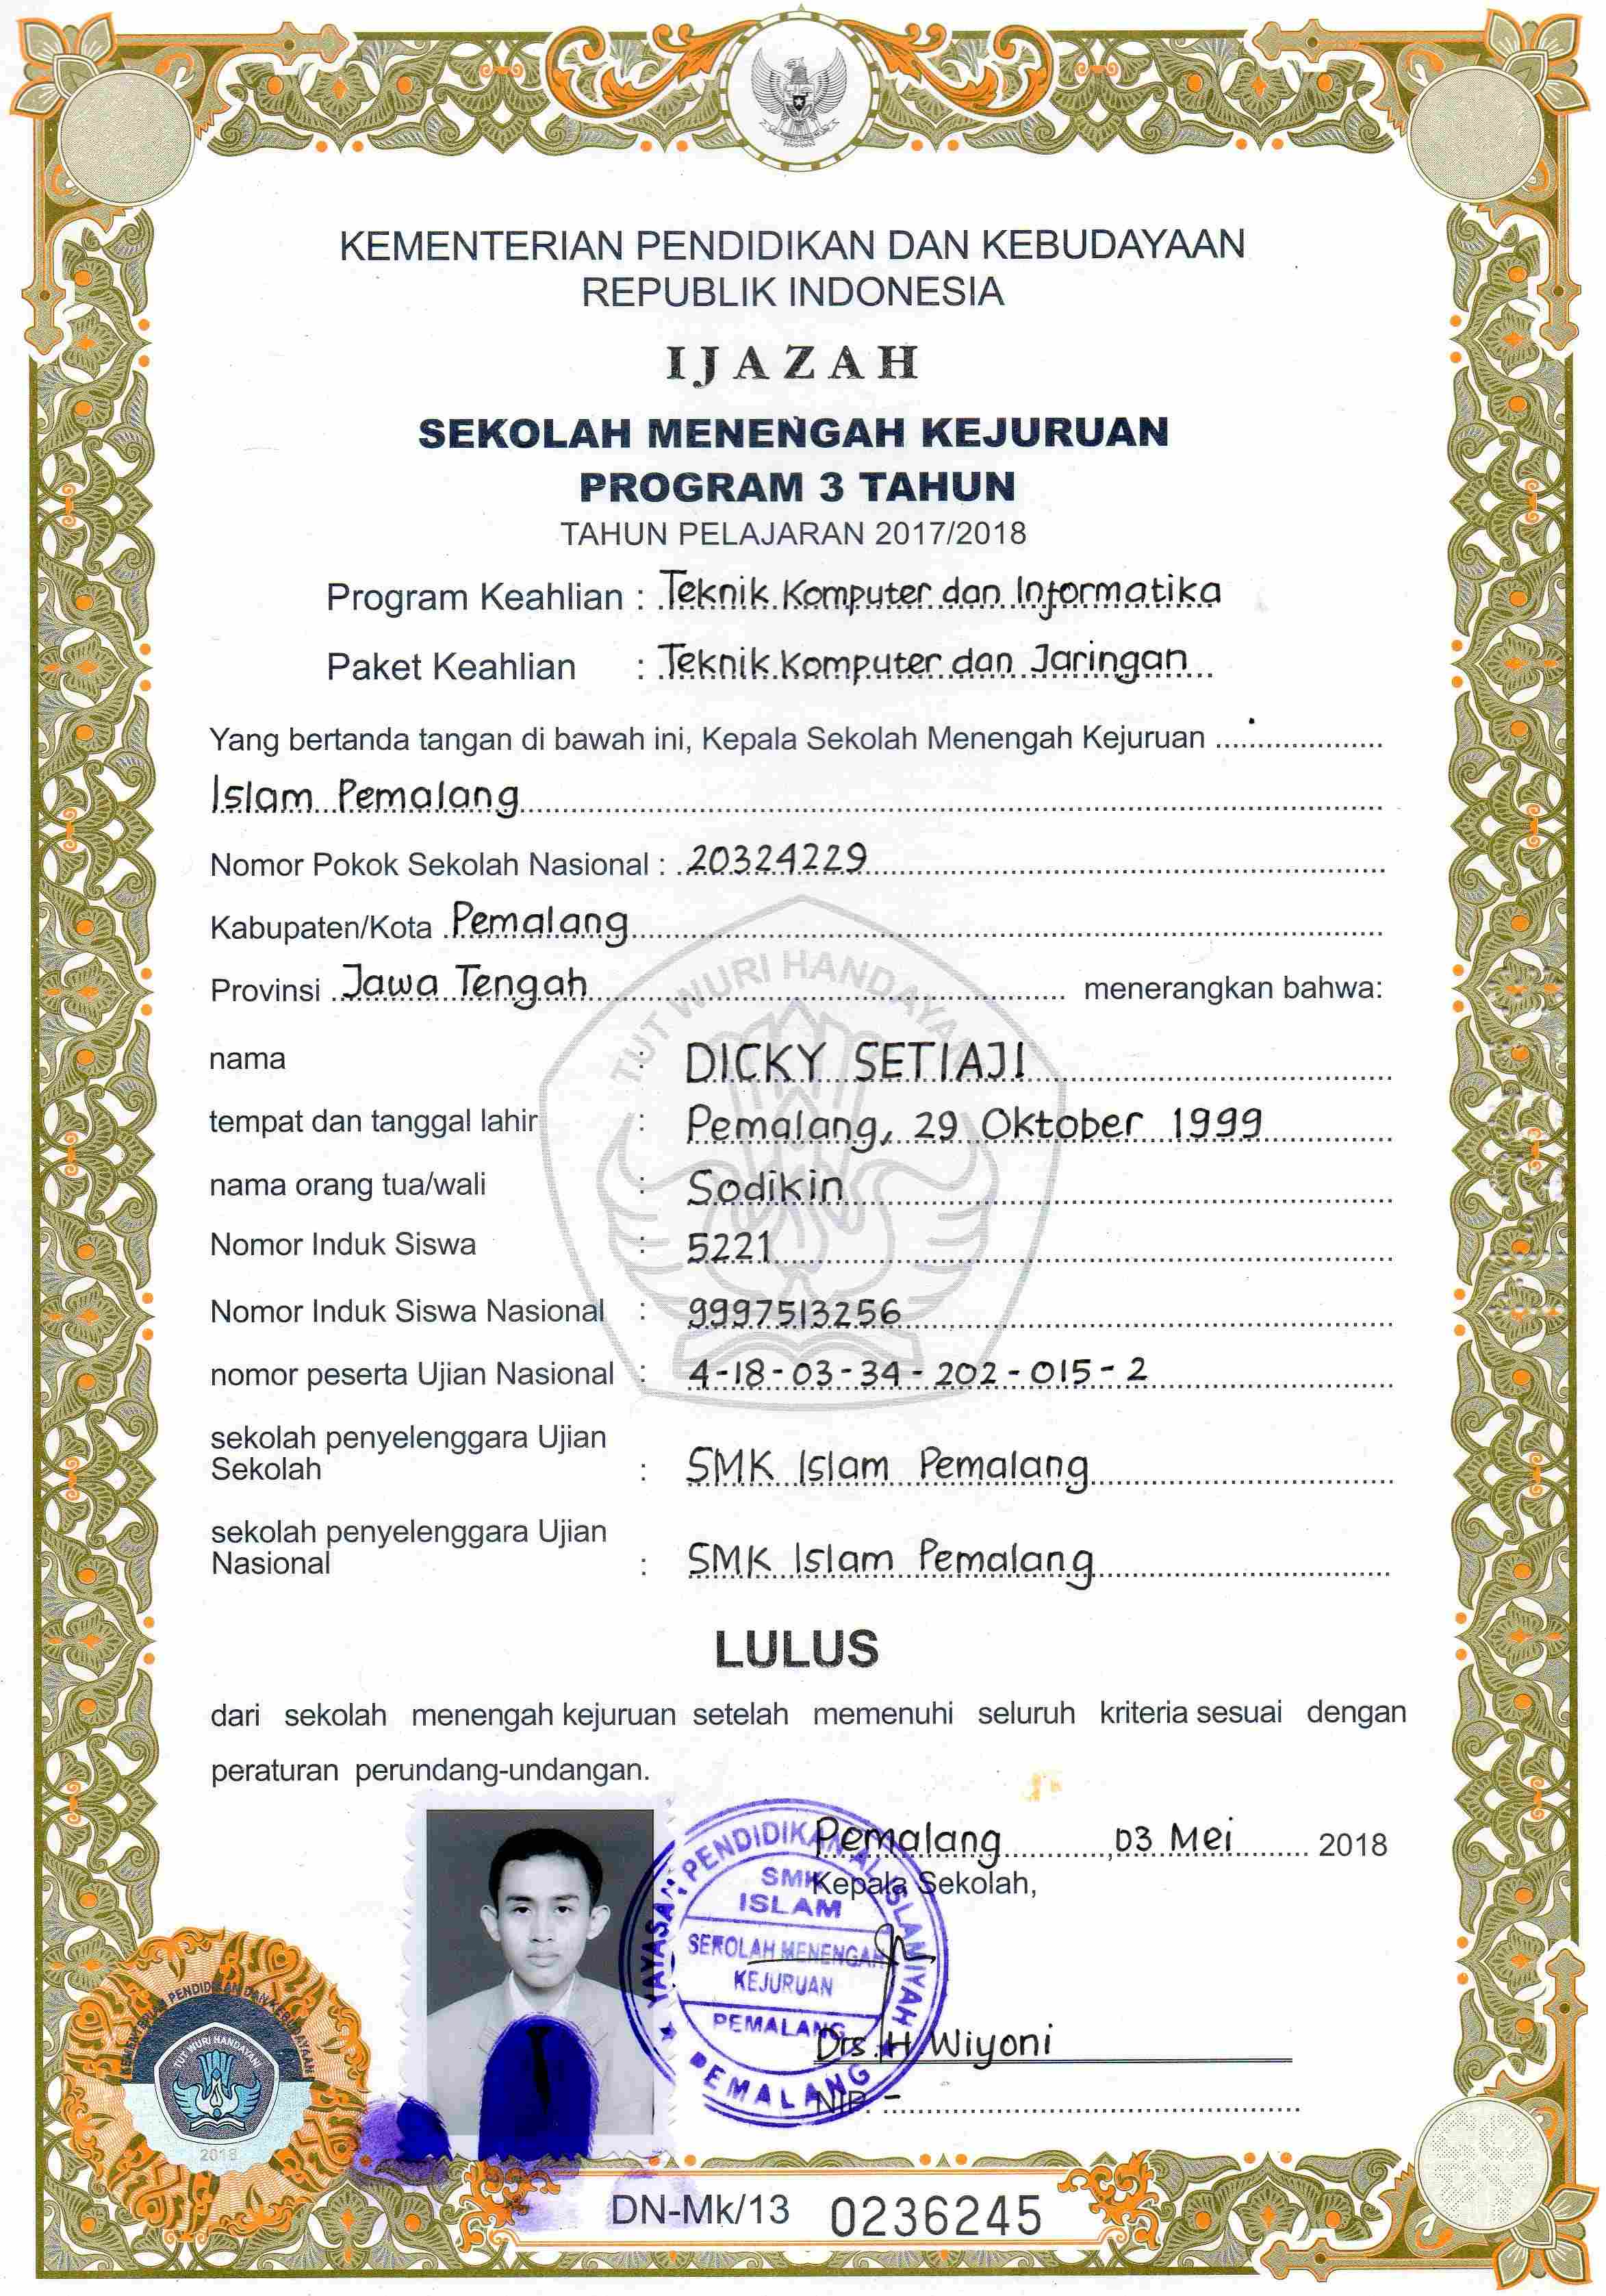 KEMENTERIAN PENDIDIKAN DAN KEBUDAYAAN
REPUBLIK INDONESIA
IJAZAH
SEKOLAH MENENGAH KEJURUAN
PROGRAM 3 TAHUN
TAHUN PELAJARAN 2017/2018
Program Keahlian : Teknik Komputer dan Informatika
Paket Keahlian : Teknik Komputer dan Jaringan
Yang bertanda tangan di bawah ini, Kepala Sekolah Menengah Kejuruan
Islam Pemalang
Nomor Pokok Sekolah Nasional : 20324229
Kabupaten/Kota Pemalang
Provinsi Jawa Tengah menerangkan bahwa:
TUT WURI HANDAYANI
nama : DICKY SETIAJI
tempat dan tanggal lahir : Pemalang, 29 Oktober 1999
nama orang tua/wali : Sodikin
Nomor Induk Siswa : 5221
Nomor Induk Siswa Nasional : 9997513256
nomor peserta Ujian Nasional : 4-18-03-34-202-015-2
sekolah penyelenggara Ujian
Sekolah : SMK Islam Pemalang
sekolah penyelenggara Ujian
Nasional : SMK Islam Pemalang
LULUS
dari sekolah menengah kejuruan setelah memenuhi seluruh kriteria sesuai dengan
peraturan perundang-undangan.
Pemalang, 03 Mei 2018
Kepala Sekolah,
YAYASAN PENDIDIKAN AL ISLAMIYAH
SMK
ISLAM
SEKOLAH MENENGAH
KEJURUAN
PEMALANG
PEMALANG
Drs. H Wiyoni
NIP. -
KEMENTERIAN PENDIDIKAN DAN KEBUDAYAAN
TUT WURI HANDAYANI
2018
DN-Mk/13 0236245